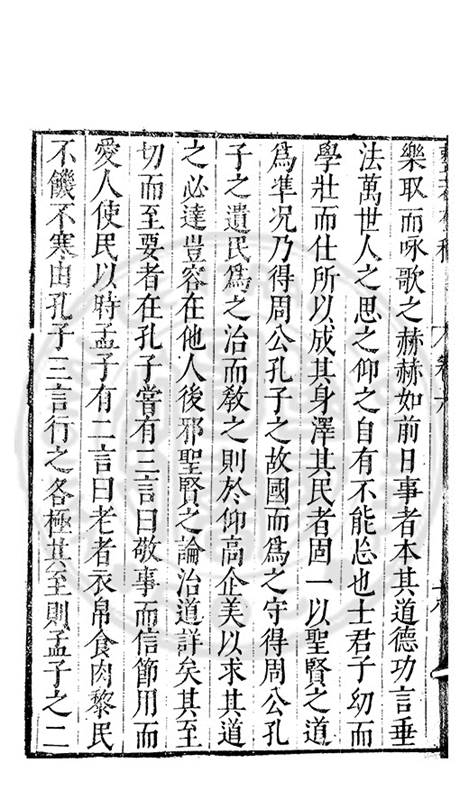 樂取而咏歌之赫赫如前日事者本其道德功言垂
法萬世人之思之仰之自有不能忘也士君子幼而
學壯而仕所以成其身澤其民者固一以聖賢之道
爲準况乃得周公孔子之故國而爲之守得周公孔
子之遺民爲之治而敎之則於仰高企美以求其道
之必達豈容在他人後邪聖賢之論治道詳矣其至
切而至要者在孔子嘗有三言曰敬事而信節用而
愛人使民以時孟子有二言曰老者衣帛食肉黎民
不饑不寒由孔子三言行之各極其至則孟子之二